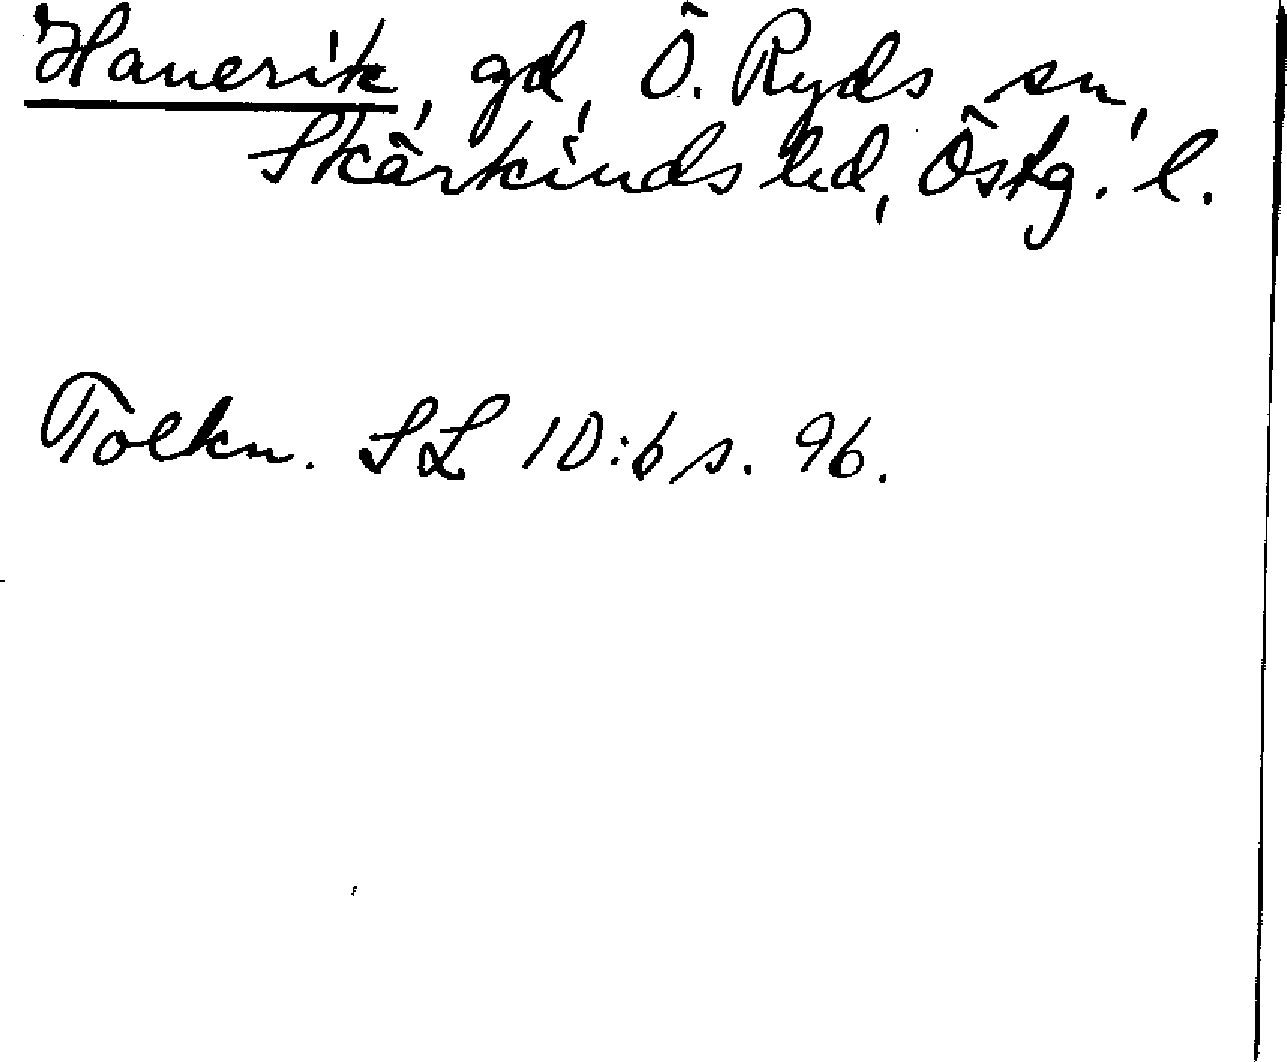 Hanerik, gd, Ö. Ryds sn,
Skärkinds hd, Östg. l.
Tolkn. SL 10:6 s. 96.